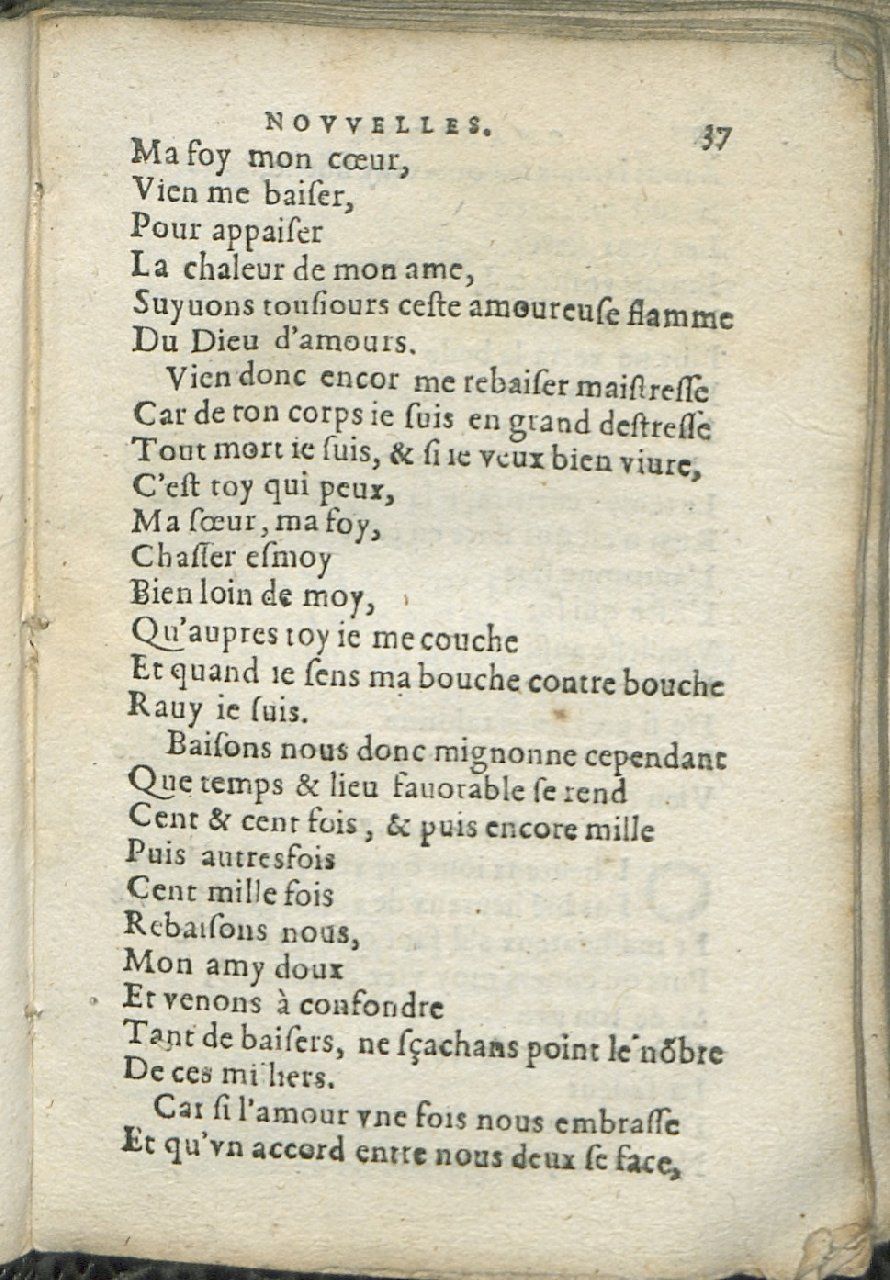 NOVVELLES. 37
Ma foy mon cœur,
Vien me baiſer,
Pour appaiſer
La chaleur de mon ame,
Suyuons touſiours ceſte amoureuſe flamme
Du Dieu d'amours.
Vien donc encor me rebaiſer maiſtreſſe
Car de ton corps ie ſuis en grand deſtreſſe
Tout mort ie ſuis, & ſi ie veux bien viure,
C'eſt toy qui peux,
Ma ſœur, ma foy,
Chaſſer eſmoy
Bien loin de moy,
Qu'aupres toy ie me couche
Et quand ie ſens ma bouche contre bouche
Rauy ie ſuis.
Baiſons nous donc mignonne cependant
Que temps & lieu fauorable ſe rend
Cent & cent fois, & puis encore mille
Puis autresfois
Cent mille fois
Rebaiſons nous,
Mon amy doux
Et venons à confondre
Tant de baiſers, ne ſçachans point le nõbre
De ces milliers.
Car ſi l'amour vne fois nous embraſſe
Et qu'vn accord entre nous deux ſe face,